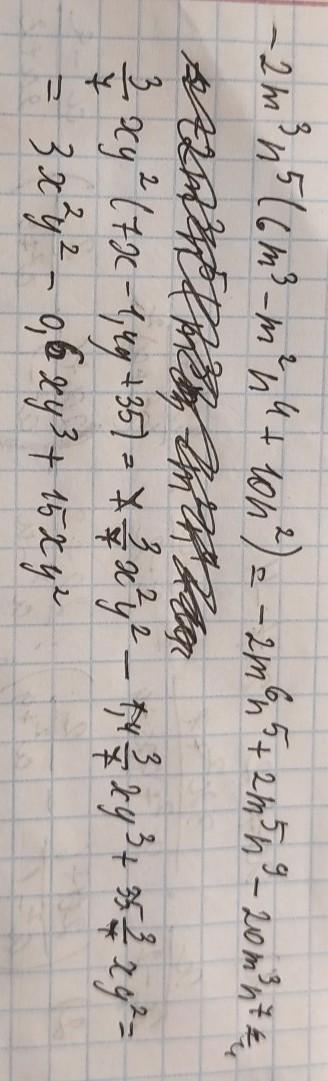 -2m³n⁵(6m³-m²n⁴+10n²)=-2m⁶n⁵+2m⁵n⁹-20m³n⁷
3/7 xy²(7x-1,4y+35)=7 3/7 x²y²-1,4 3/7 xy³+35 3/7 xy²=
=3x²y²-0,6xy³+15xy²